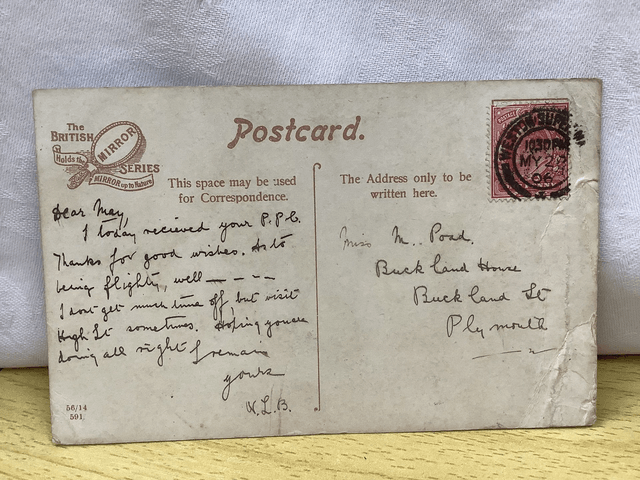 The
BRITISH
MIRROR
SERIES
Holds the
MIRROR up to Nature
Postcard.
This space may be used
for Correspondence.
Dear May,
I today recieved your P.P.C.
Thanks for good wishes. As to
being flighty, well — - - -
I dont get much time off, but visit
High St sometimes. Hoping you are
doing all right I remain
yours
W.L.B.
56/14
591.
The Address only to be
written here.
POSTAGE
WESTON-SUPER-MA
1030PM
MY 2
06
Miss M. Poad.
Buckland House
Buckland St
Plymouth